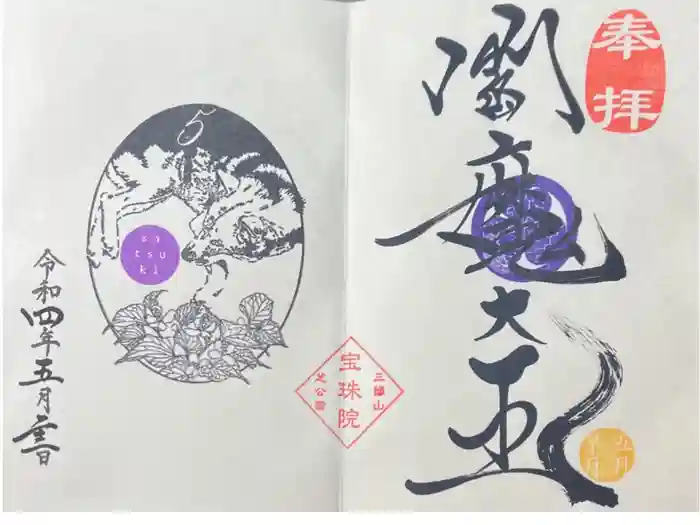 奉拝
閻魔大王
五月
三縁山
宝珠院
芝公園
5
sa
tsu
ki
令和四年五月
日